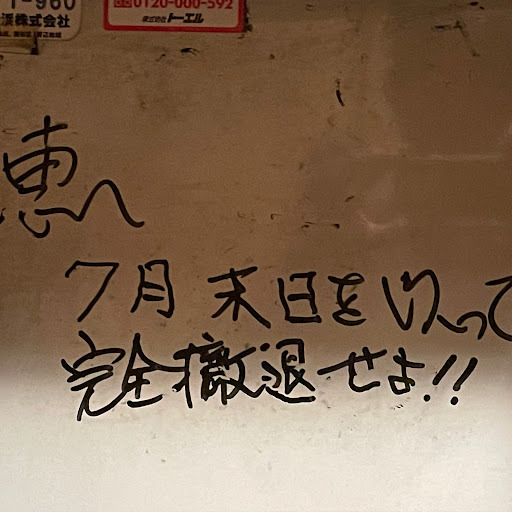 1-960
浜株式会社
0120-000-592
株式会社トーエル
恵へ
7月末日をもって
完全撤退せよ!!